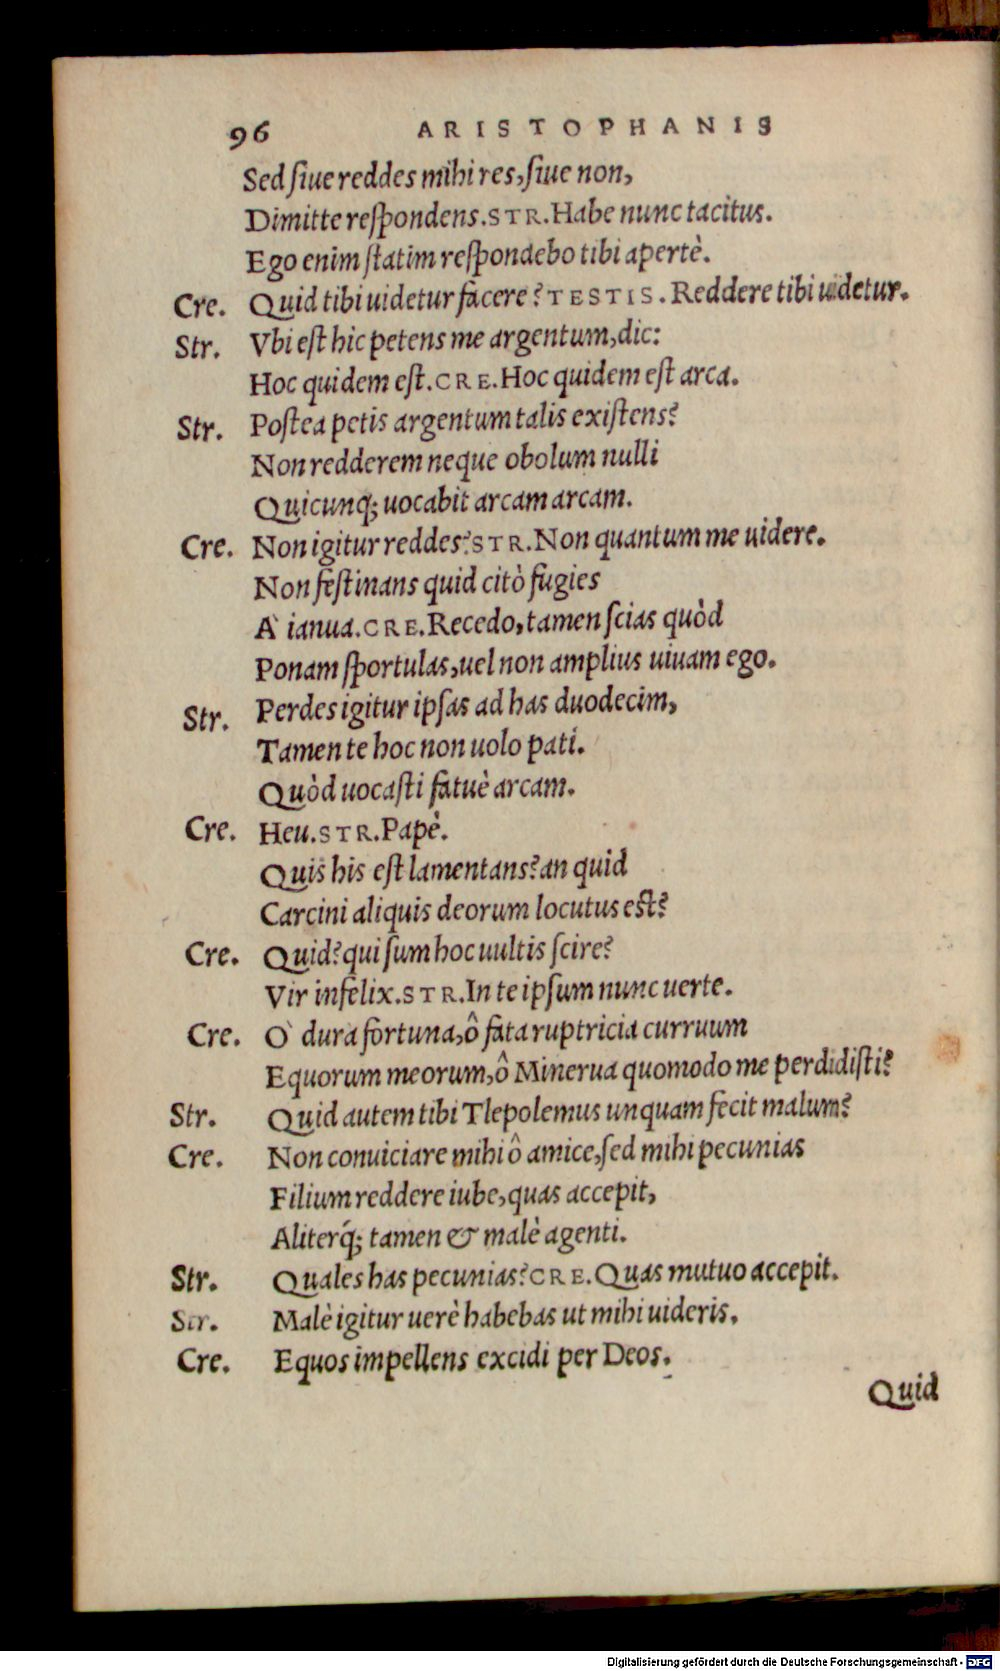 96 ARISTOPHANIS
Sed ſiue reddes mihi res, ſiue non,
Dimitte reſpondens. STR. Habe nunc tacitus.
Ego enim ſtatim reſpondebo tibi apertè.
Cre. Quid tibi uidetur facere? TESTIS. Reddere tibi uidetur.
Str. Vbi eſt hic petens me argentum, dic:
Hoc quidem eſt. CRE. Hoc quidem eſt arca.
Str. Poſtea petis argentum talis exiſtens?
Non redderem neque obolum nulli
Quicunq; uocabit arcam arcam.
Cre. Non igitur reddes? STR. Non quantum me uidere.
Non feſtinans quid citò fugies
A ianua. CRE. Recedo, tamen ſcias quòd
Ponam ſportulas, uel non amplius uiuam ego.
Str. Perdes igitur ipſas ad has duodecim,
Tamen te hoc non uolo pati.
Quòd uocaſti fatuè arcam.
Cre. Heu. STR. Papè.
Quis his eſt lamentans? an quid
Carcini aliquis deorum locutus eſt?
Cre. Quid? qui ſum hoc uultis ſcire?
Vir infelix. STR. In te ipſum nunc uerte.
Cre. O dura fortuna, ô fata ruptricia curruum
Equorum meorum, ô Minerua quomodo me perdidiſti?
Str. Quid autem tibi Tlepolemus unquam fecit malum?
Cre. Non conuiciare mihi ô amice, ſed mihi pecunias
Filium reddere iube, quas accepit,
Aliterq́; tamen & malè agenti.
Str. Quales has pecunias? CRE. Quas mutuo accepit.
Str. Malè igitur uerè habebas ut mihi uideris.
Cre. Equos impellens excidi per Deos.
Quid
Digitalisierung gefördert durch die Deutsche Forschungsgemeinschaft - DFG